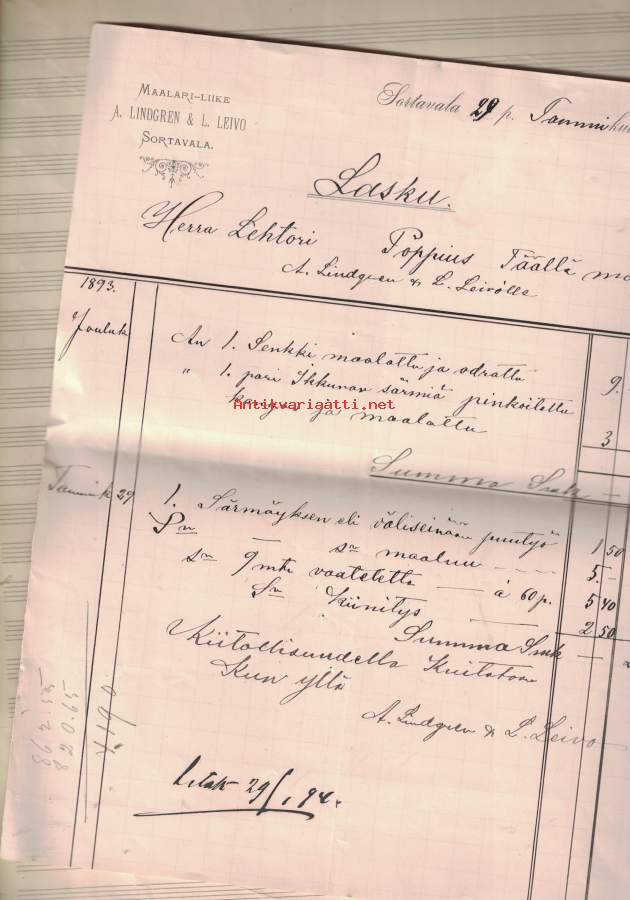 MAALARI-LIIKE
A. LINDGREN & L. LEIVO
SORTAVALA.
Sortavala 29 p. Tammikuu
Lasku.
Herra Lehtori Poppius Täällä
A. Lindgren & L. Leivolle
1893.
Jouluk An 1. Senkki maalattu ja odrattu 9.-
" 1. pari Ikkunan särmiä pinkoitettu
ja maalattu 3
Antikvariaatti.net
Summa Smk —
Tammik 29 1. Särmäyksen eli väliseinään puutyö 1 50
Sn — sn maaluu - - - - 5.-
sn 9 mtr vaatetetta — à 60 p. 5 40
Sn Kiinitys — 2 50
Summa Smk —
Kiitollisuudella Kuitataan
Kun yllä
A. Lindgren & L. Leivo
29/1 94.
862.55
820.65
4190